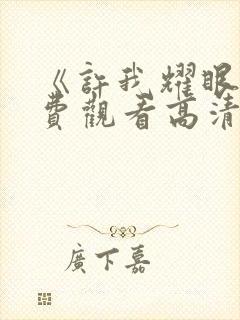 《許我耀眼
費觀看高清
廣下嘉